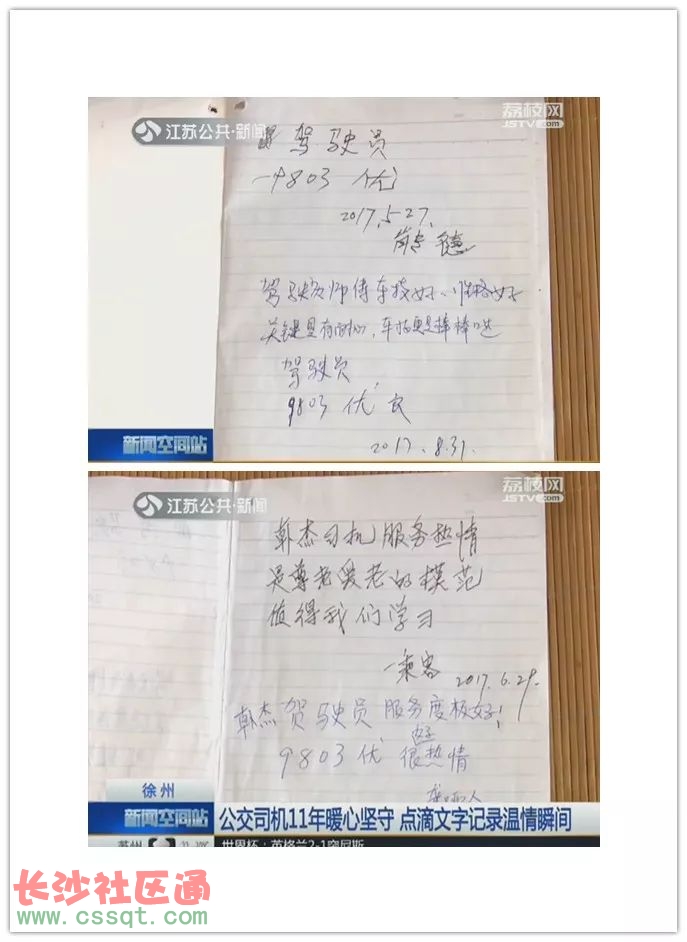 江苏公共·新闻
荔枝网
JSTV.COM
驾驶员
9803 优
2017.5-27.
驾驶员师傅车技好、性格好
关键是有耐心，车技更是棒棒哒
驾驶员
9803 优良
2017.8.31.
新闻空间站
江苏公共·新闻
荔枝网
JSTV.COM
韩杰司机服务热情
是尊老爱老的模范
值得我们学习
一乘客
2017.6.29.
韩杰驾驶员 服务度极好!
9803优 很热情
徐州
新闻空间站
公交司机11年暖心坚守 点滴文字记录温情瞬间
世界杯：英格兰2-1突尼斯
长沙社区通
www.cssqt.com